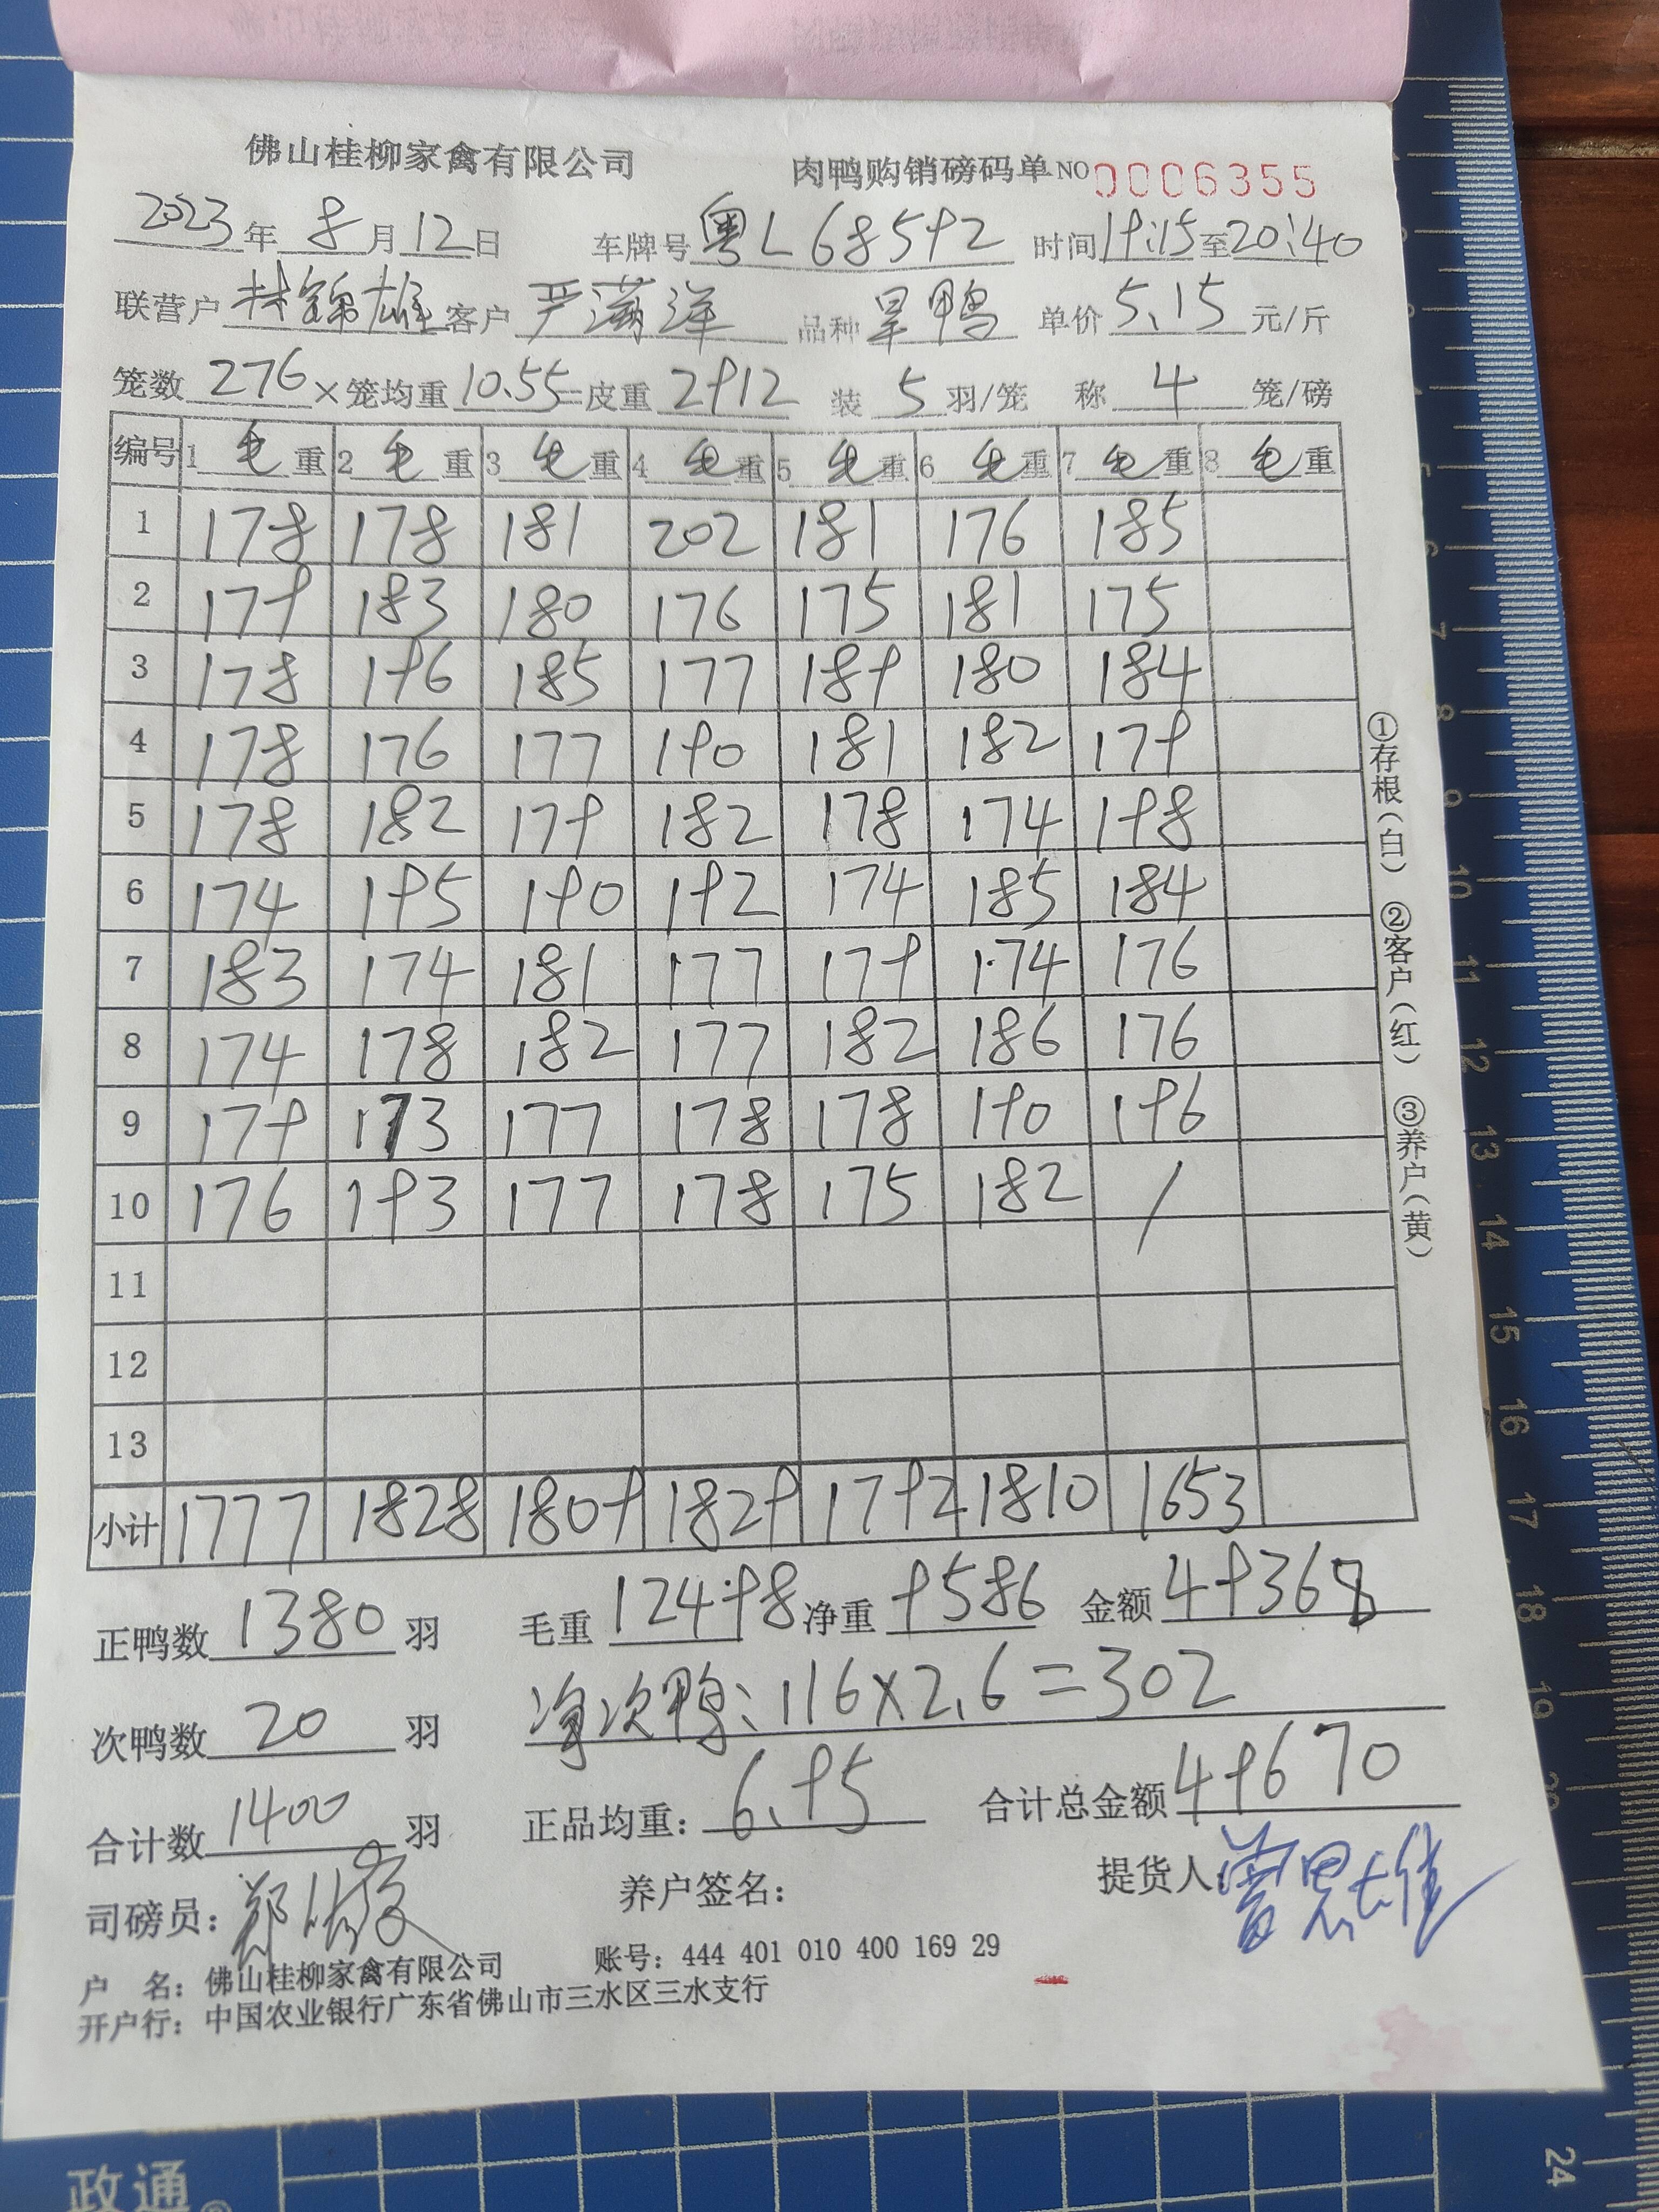 佛山桂柳家禽有限公司 肉鸭购销磅码单 NO 0006355
2023年 8月12日 车牌号 粤L68592 时间19:15至20:40
联营户 林锦雄 客户 严满洋 品种 旱鸭 单价 5.15 元/斤
笼数 276 ×笼均重 10.55 =皮重 2912 装 5 羽/笼 称 4 笼/磅
编号 1 毛重 2 毛重 3 毛重 4 毛重 5 毛重 6 毛重 7 毛重 8 毛重
1 178 178 181 202 181 176 185
2 179 183 180 176 175 181 175
3 178 196 185 177 189 180 184
4 178 176 177 190 181 182 179
5 178 182 179 182 178 174 198
6 174 195 190 192 174 185 184
7 183 174 181 177 179 174 176
8 174 178 182 177 182 186 176
9 179 173 177 178 178 190 196
10 176 193 177 178 175 182 /
11
12
13
小计 1777 1828 1809 1829 1792 1810 1653
正鸭数 1380 羽 毛重 12498 净重 9586 金额 49368
次鸭数 20 羽 净次鸭:116×2.6=302
合计数 1400 羽 正品均重: 6.95 合计总金额 49670
司磅员: 养户签名: 提货人:
户 名: 佛山桂柳家禽有限公司 账号: 444 401 010 400 169 29
开户行: 中国农业银行广东省佛山市三水区三水支行
①存根(白) ②客户(红) ③养户(黄)
6
7
8
9
10
11
12
13
14
15
16
17
18
19
20
24
政通®